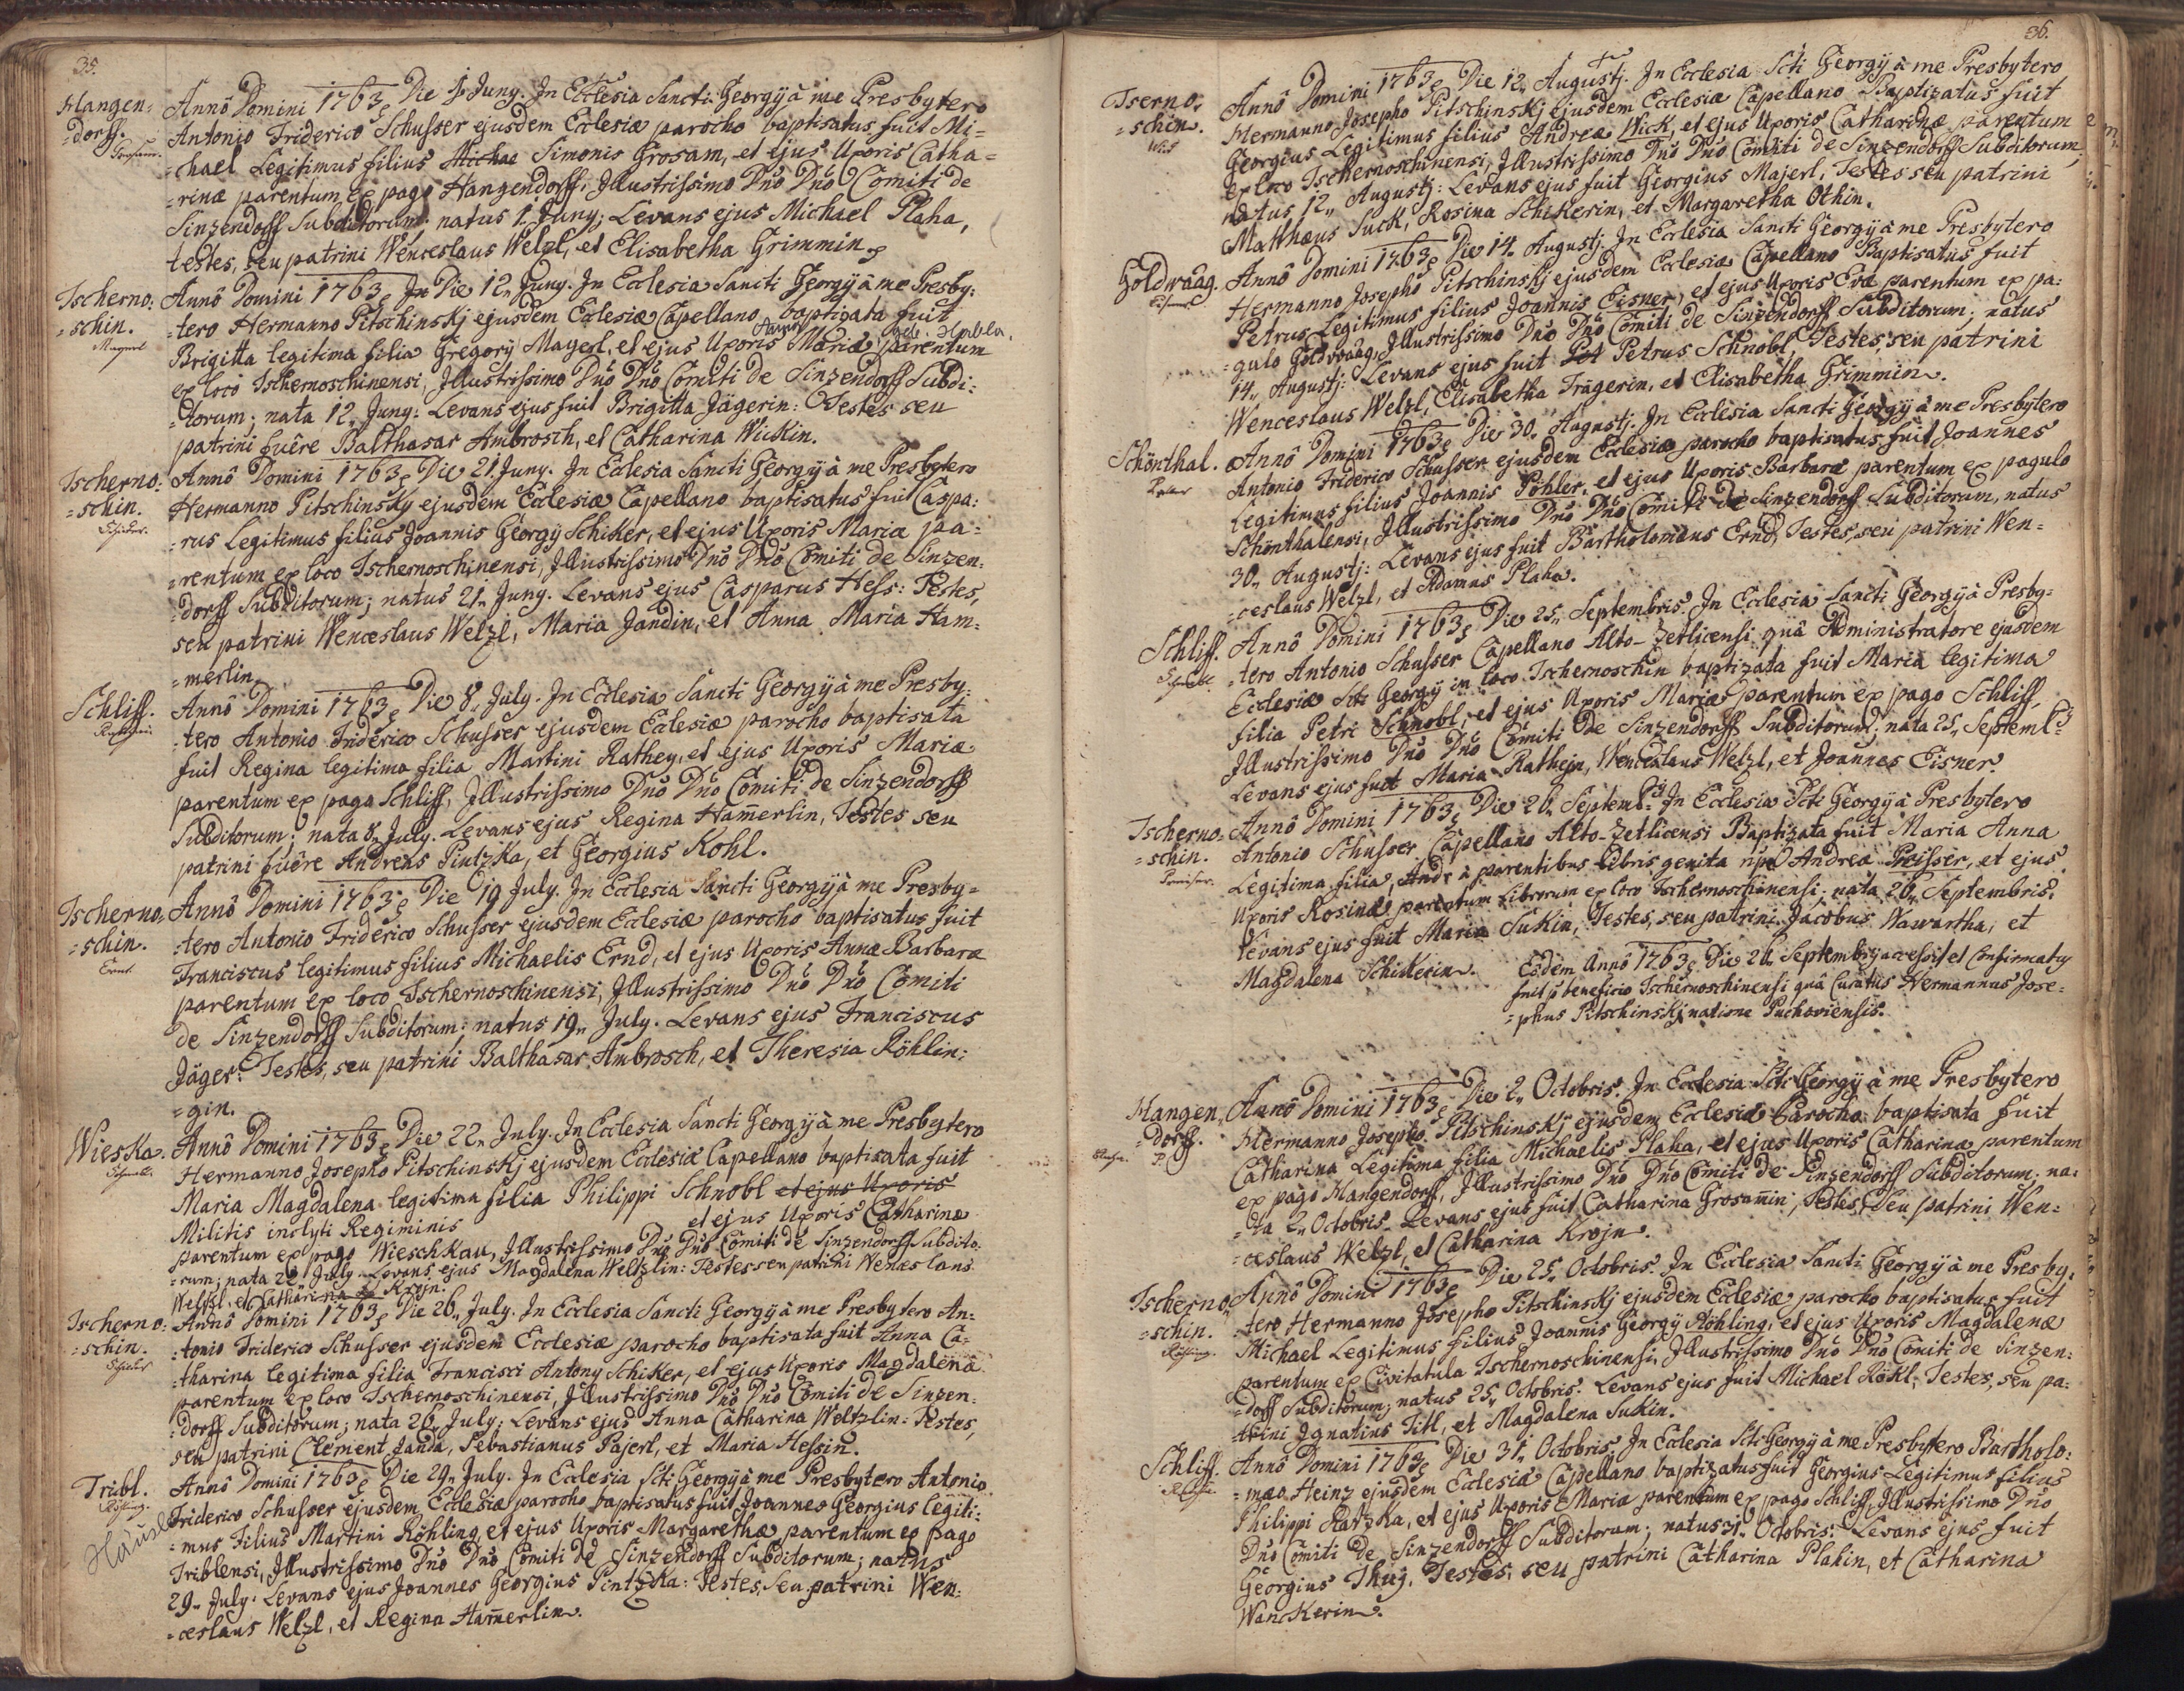 35.
Hangen=
=dorff.
Annô Domini 1763 Die 1 Juny. In Ecclesia Sancti Georgÿ à me Presbytero
Antonio Friderico Schusser ejusdem Ecclesiæ parocho baptisatus fuit Mi=
=chael Legitimus filius Michae Simonis Grosam, et ejus Uxoris Catha=
=rinæ parentum ex pago Hangendorff, Illustrissimo Dño Dño Comiti de
Sinzendorff Subditorum; natus 1. Juny; Levans ejus Michael Plaha,
testes, seu patrini Wenceslaus Welzl, et Elisabetha Grimmin.
Tscherno:
=schin.
Mayerl
Annô Domini 1763 In Die 12„ Juny. In Ecclesia Sancti Georgÿ à me Presby:
=tero Hermanno Pitschinskj ejusdem Ecclesiæ Capellano baptizata fuit
Brigitta legitima filia Gregorÿ Mayerl, et ejus Uxoris Anna Maria geb. Habla. parentum
ex loco Tschernoschinensi, Illustrissimo Dño Dño Comiti de Sinzendorff Subdi:
=torum; nata 12„ Juny: Levans ejus fuit Brigitta Jägerin: Testes seu
patrini fuêre Balthasar Ambrosch, et Catharina Wickin.
Tscherno:
=schin.
Schicker.
Annô Domini 1763 Die 21. Juny. In Ecclesia Sancti Georgÿ à me Presbytero
Hermanno Pitschinsky ejusdem Ecclesiæ Capellano baptisatus fuit Caspa:
=rus Legitimus filius Joannis Georgÿ Schiker, et ejus Uxoris Mariæ pa=
=rentum ex loco Tschernoschinensi, Illustrissimo Dño Dño Comiti de Sinzen:
=dorff Subditorum; natus 21„ Juny. Levans ejus Casparus Hess: Testes,
seu patrini Wenceslaus Welzl, Maria Jandin, et Anna Maria Ham:
=merlin.
Schliff.
Annô Domini 1763 Die 8„ July. In Ecclesia Sancti Georgÿ à me Presby:
=tero Antonio Friderico Schusser ejusdem Ecclesiæ parocho baptisata
fuit Regina legitima filia Martini Rathey, et ejus Uxoris Mariæ
parentum ex pago Schliff, Illustrissimo Dño Dño Comiti de Sinzendorff
Subditorum; nata 8„ July. Levans ejus Regina Ham̄erlin, Testes seu
patrini fuêre Andreas Pintzka, et Georgius Kohl.
Tscherno=
=schin.
Ernt.
Annô Domini 1763 Die 19 July. In Ecclesia Sancti Georgÿ à me Presby=
=tero Antonio Friderico Schusser ejusdem Ecclesiæ parocho baptisatus fuit
Franciscus legitimus filius Michaelis Ernd, et ejus Uxoris Annæ Barbaræ
parentum ex loco Tschernoschinensi, Illustrissimo Dño Dño Comiti
de Sinzendorff Subditorum; natus 19„ July. Levans ejus Franciscus
Jäger: Testes, seu patrini Balthasar Ambrosch, et Theresia Röhlin:
=gin.
Wieska.
Annô Domini 1763 Die 22„ July. In Ecclesia Sancti Georgÿ à me Presbytero
Hermanno Josepho Pitschinskj ejusdem Ecclesiæ Capellano baptisata fuit
Maria Magdalena legitima filia Philippi Schnobl et ejus Uxoris
Militis inclyti Regiminis et ejus Uxoris Catharinæ
parentum ex pago Wieschkau, Illustrissimo Dño Dño Comiti de Sinzendorff Subdito:
=rum; nata 22 July. Levans ejus Magdalena Weltzlin: Testes seu patrini Wenceslaus
Welzl, et Catharina Krojn.
Tscherno:
=schin.
Schicker
Annô Domini 1763 Die 26„ July. In Ecclesia Sancti Georgÿ à me Presbytero An:
=tonio Friderico Schusser ejusdem Ecclesiæ parocho baptisata fuit Anna Ca=
=tharina legitima filia Francisci Antony Schiker, et ejus Uxoris Magdalena
parentum ex loco Tschernoschinensi, Illustrissimo Dño Dño Comiti de Sinzen:
=dorff Subditorum; nata 26„ July; Levans ejus Anna Catharina Weltzlin: Testes,
seu patrini Clement Janda, Sebastianus Pajerl, et Maria Hessin.
Tribl.
Röhling.
Häusl
Annô Domini 1763 Die 29„ July. In Ecclesia Scti Georgÿ à me Presbytero Antonio
Friderico Schusser ejusdem Ecclesiæ parocho baptisatus fuit Joannes Georgius legiti:
=mus Filius Martini Röhling et ejus Uxoris Margarethæ parentum ex pago
Triblensi, Illustrissimo Dño Dño Comiti de Sinzendorff Subditorum; natus
29„ July. Levans ejus Joannes Georgius Pintzka: Testes, seu patrini Wen:
=ceslaus Welzl, et Regina Ham̄erlin.
36.
Tserno=
=schin.
Wick
Annô Domini 1763 Die 12„ Augustj. In Ecclesia Scti Georgÿ à me Presbytero
Hermanno Josepho Pitschinskj ejusdem Ecclesiæ Capellano Baptizatus fuit
Georgius Legitimus filius Andreæ Wick, et ejus Uxoris Catharinæ parentum
ex loco Tschernoschinensi, Illustrissimo Dño Dño Comiti de Sinzendorff Subditorum,
natus 12„ Augustj: Levans ejus fuit Georgius Majerl, Testes seu patrini
Matthæus Suck, Rosina Schikerin, et Margaretha Othin.
Goldwaag.
Eisner
Annô Domini 1763 Die 14. Augustj. In Ecclesia Sancti Georgÿ à me Presbytero
Hermanno Josepho Pitschinskÿ ejusdem Ecclesiæ Capellano Baptisatus fuit
Petrus Legitimus filius Joannis Eisner, et ejus Uxoris Evæ parentum ex pa:
=gulo Goldwaag, Illustrissimo Dño Dño Comiti de Sinzendorff Subditorum; natus
14„ Augustj: Levans ejus fuit Pet Petrus Schnobl, Testes, seu patrini
Wenceslaus Welzl, Elisabetha Trägerin, et Elisabetha Grimmin.
Schönthal.
Annô Domini 1763 Die 30„ Augustj. In Ecclesia Sancti Georgÿ à me Presbytero
Antonio Friderico Schusser ejusdem Ecclesiæ parocho baptisatus fuit Joannes
Legitimus filius Joannis Pöhler, et ejus Uxoris Barbaræ parentum ex pagulo
Schönthalensi, Illustrissimo Dño Dño Comiti de Sinzendorff Subditorum, natus
30„ Augustj: Levans ejus fuit Bartholomæus Ernd, Testes, seu patrini Wen=
=ceslaus Welzl, et Adamus Plaha.
Schliff.
Annô Domini 1763 Die 25„ Septembris. In Ecclesia Sancti Georgÿ à Presby=
=tero Antonio Schusser Capellano Alto-Zetlicensi quâ Administratore ejusdem
Ecclesiæ Scti Georgÿ in loco Tschernoschin baptizata fuit Maria legitima
filia Petri Schnobl, et ejus Uxoris Mariæ parentum ex pago Schliff,
Illustrissimo Dño Dño Comiti de Sinzendorff Subditorum; nata 25„ Septemb:
Levans ejus fuit Maria Rathejn, Wenceslaus Welzl, et Joannes Eisner.
Tscherno=
=schin.
Preisser.
Annô Domini 1763 Die 26„ Septemb: In Ecclesia Scti Georgÿ à Presbytero
Antonio Schusser Capellano Alto-Zetlicensi Baptizata fuit Maria Anna
Legitima filia, Andr à parentibus libris genita npe Andrea Preisser, et ejus
Uxoris Rosina parentum Librorum ex loco Tschernoschinensi; nata 26„ Septembris.
Levans ejus fuit Maria Sukin, Testes, seu patrini Jacobus Wawartha, et
Magdalena Schikerin.
Eodem Annô 1763 Die 26„ Septembrÿ accessit et Confirmatus
fuit p beneficio Tschernoschinensi quâ Curatus Hermannus Jose:
=phus Pitschinskj natione Puchoviensis.
Hangen„
=dorff.
Annô Domini 1763 Die 2„ Octobris. In Ecclesia Scti Georgÿ à me Presbytero
Hermanno Josepho Pitschinskj ejusdem Ecclesiæ Parocho baptisata fuit
Catharina Legitima filia Michaelis Plaha, et ejus Uxoris Catharinæ parentum
ex pago Hangendorff, Illustrissimo Dño Dño Comiti de Sinzendorff Subditorum; na:
=ta 2„ Octobris. Levans ejus fuit Catharina Grosam̄in, Testes, Seu patrini Wen=
=ceslaus Welzl, et Catharina Krojn.
Tscherno„
=schin.
Röhling.
Annô Domini 1763 Die 25„ Octobris. In Ecclesia Sancti Georgÿ à me Presby:
=tero Hermanno Josepho Pitschinskj ejusdem Ecclesiæ parocho baptisatus fuit
Michael Legitimus filius Joannis Georgÿ Röhling, et ejus Uxoris Magdalenæ
parentum ex Civitatula Tschernoschinensi, Illustrissimo Dño Dño Comiti de Sinzen:
=dorff Subditorum; natus 25„ Octobris. Levans ejus fuit Michael Kökl, Testes, seu pa:
=trini Ignatius Titl, et Magdalena Sukin.
Schliff.
Annô Domini 1763 Die 31„ Octobris. In Ecclesia Scti Georgÿ à me Presbÿtero Bartholo:
=mæo Heinz ejusdem Ecclesiæ Capellano baptizatus fuit Georgius Legitimus filius
Philippi Ratzka, et ejus Uxoris Mariæ parentum ex pago Schliff, Illustrissimo Dño
Dño Comiti de Sinzendorff Subditorum; natus 31„ Octobris. Levans ejus fuit
Georgius Thuj. Testes, seu patrini Catharina Plahin, et Catharina
Wanckerin.